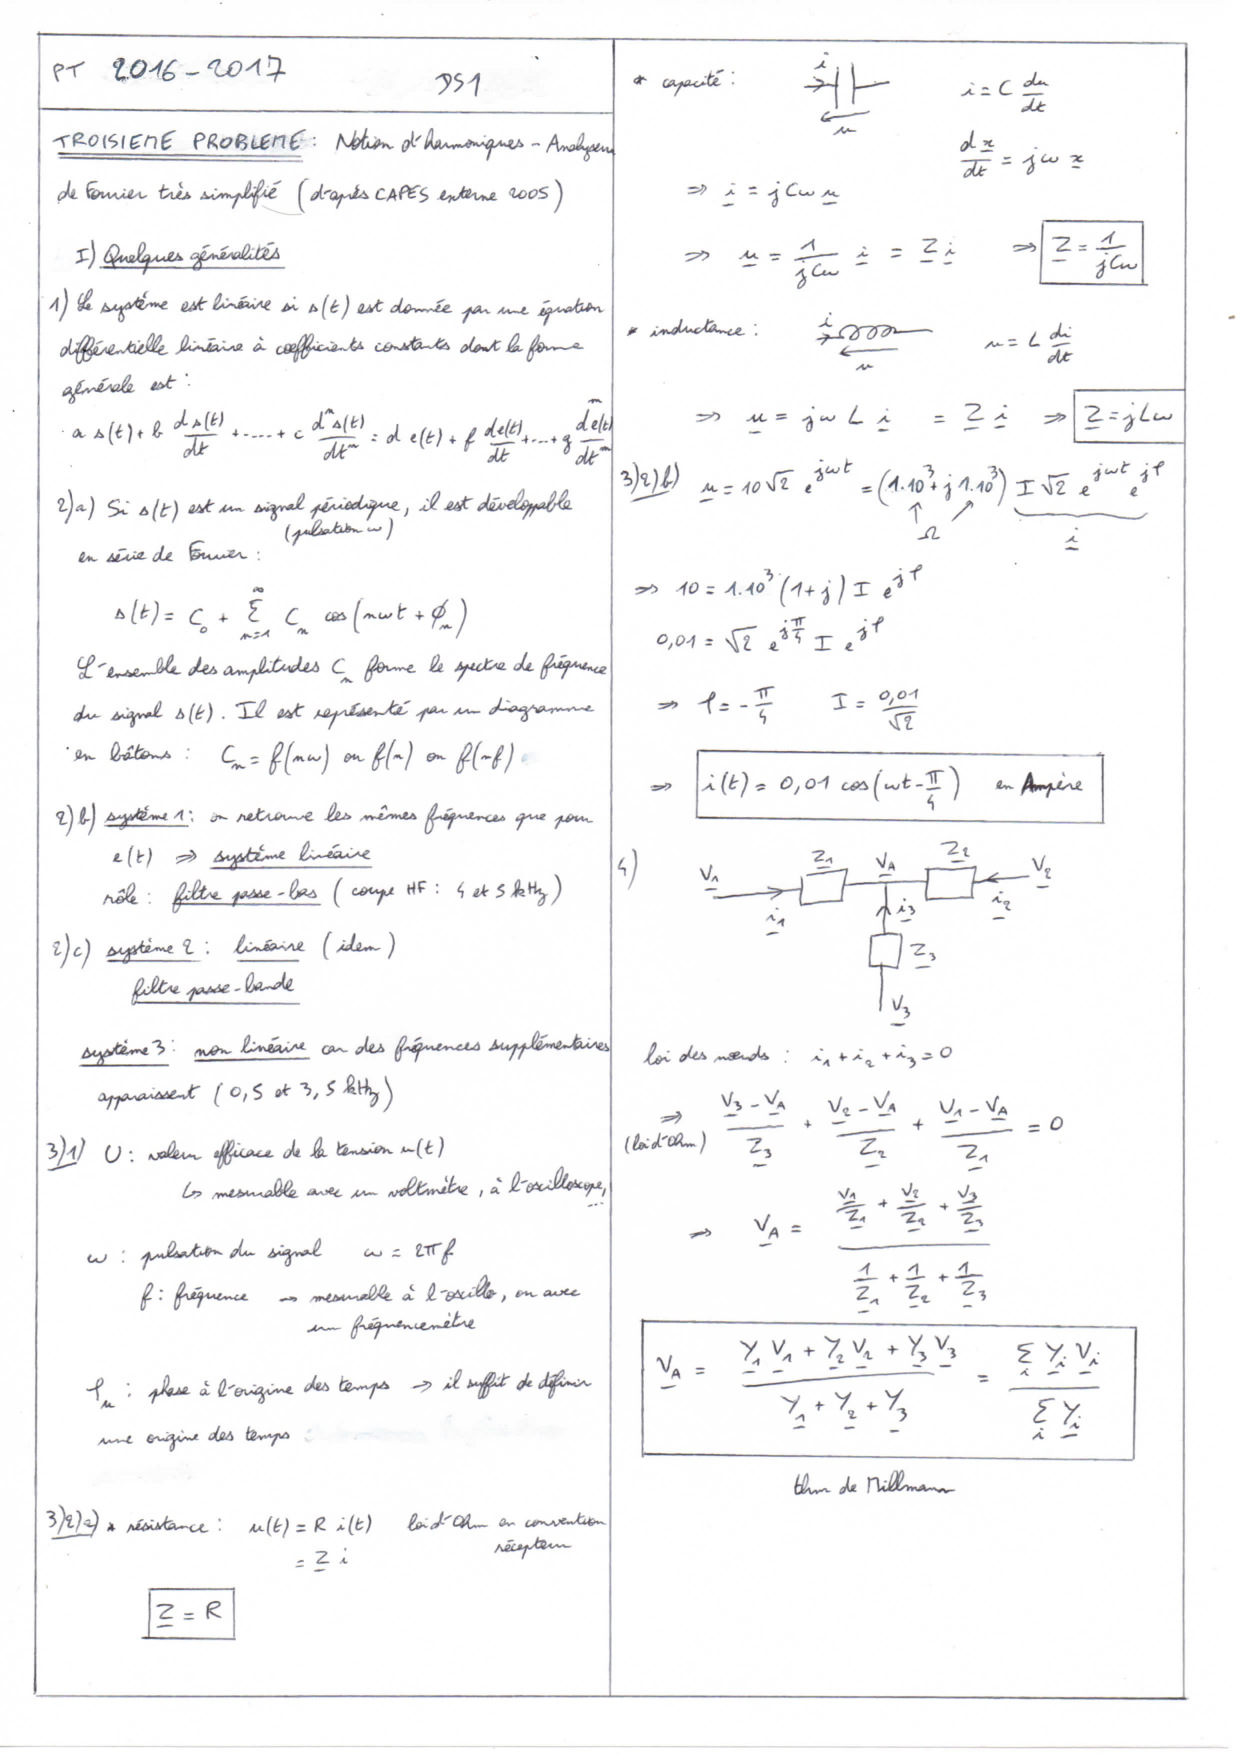 PT 2016-2017 DS1
TROISIEME PROBLEME : Notion d'harmoniques - Analyseur
de Fourier très simplifié (d'après CAPES externe 2005)
I) Quelques généralités
1) Le système est linéaire si s(t) est donnée par une équation
différentielle linéaire à coefficients constants dont la forme
générale est :
a s(t) + b ds(t)/dt + ..... + c dⁿs(t)/dtⁿ = d e(t) + f de(t)/dt + ... + g dᵐe(t)/dtᵐ
2)a) Si s(t) est un signal périodique, il est développable
(pulsation ω)
en série de Fourier :
s(t) = C₀ + Σ_{n=1}^{∞} Cₙ cos(nωt + ϕₙ)
L'ensemble des amplitudes Cₙ forme le spectre de fréquence
du signal s(t). Il est représenté par un diagramme
en bâtons : Cₙ = f(nω) ou f(n) ou f(nf)
2)b) système 1 : on retrouve les mêmes fréquences que pour
e(t) ⇒ système linéaire
rôle : filtre passe-bas (coupe HF : 4 et 5 kHz)
2)c) système 2 : linéaire (idem)
filtre passe-bande
système 3 : non linéaire car des fréquences supplémentaires
apparaissent (0,5 et 3,5 kHz)
3)1) U : valeur efficace de la tension u(t)
↳ mesurable avec un voltmètre, à l'oscilloscope, ...
ω : pulsation du signal ω = 2πf
f : fréquence → mesurable à l'oscillo, ou avec
un fréquencemètre
φᵤ : phase à l'origine des temps → il suffit de définir
une origine des temps
3)2)a) * résistance : u(t) = R i(t) loi d'Ohm en convention
récepteur
= Z i
Z = R
* capacité : i u i = C du/dt
dx/dt = jω x
⇒ i = jCω u
⇒ u = 1/(jCω) i = Z i ⇒ Z = 1/(jCω)
* inductance : i u u = L di/dt
⇒ u = jωL i = Z i ⇒ Z = jLω
3)2)b) u = 10√2 e^{jωt} = (1.10³ + j 1.10³) I√2 e^{jωt} e^{jφ}
Ω i
⇒ 10 = 1.10³ (1+j) I e^{jφ}
0,01 = √2 e^{jπ/4} I e^{jφ}
⇒ φ = -π/4 I = 0,01/√2
⇒ i(t) = 0,01 cos(ωt - π/4) en Ampère
4) V₁ Z₁ V_A Z₂ V₂
i₁ i₃ i₂
Z₃
V₃
loi des nœuds : i₁ + i₂ + i₃ = 0
⇒ (V₃ - V_A)/Z₃ + (V₂ - V_A)/Z₂ + (V₁ - V_A)/Z₁ = 0
(loi d'Ohm)
⇒ V_A = (V₁/Z₁ + V₂/Z₂ + V₃/Z₃)/(1/Z₁ + 1/Z₂ + 1/Z₃)
V_A = (Y₁V₁ + Y₂V₂ + Y₃V₃)/(Y₁ + Y₂ + Y₃) = Σᵢ YᵢVᵢ / Σᵢ Yᵢ
thm de Millmann